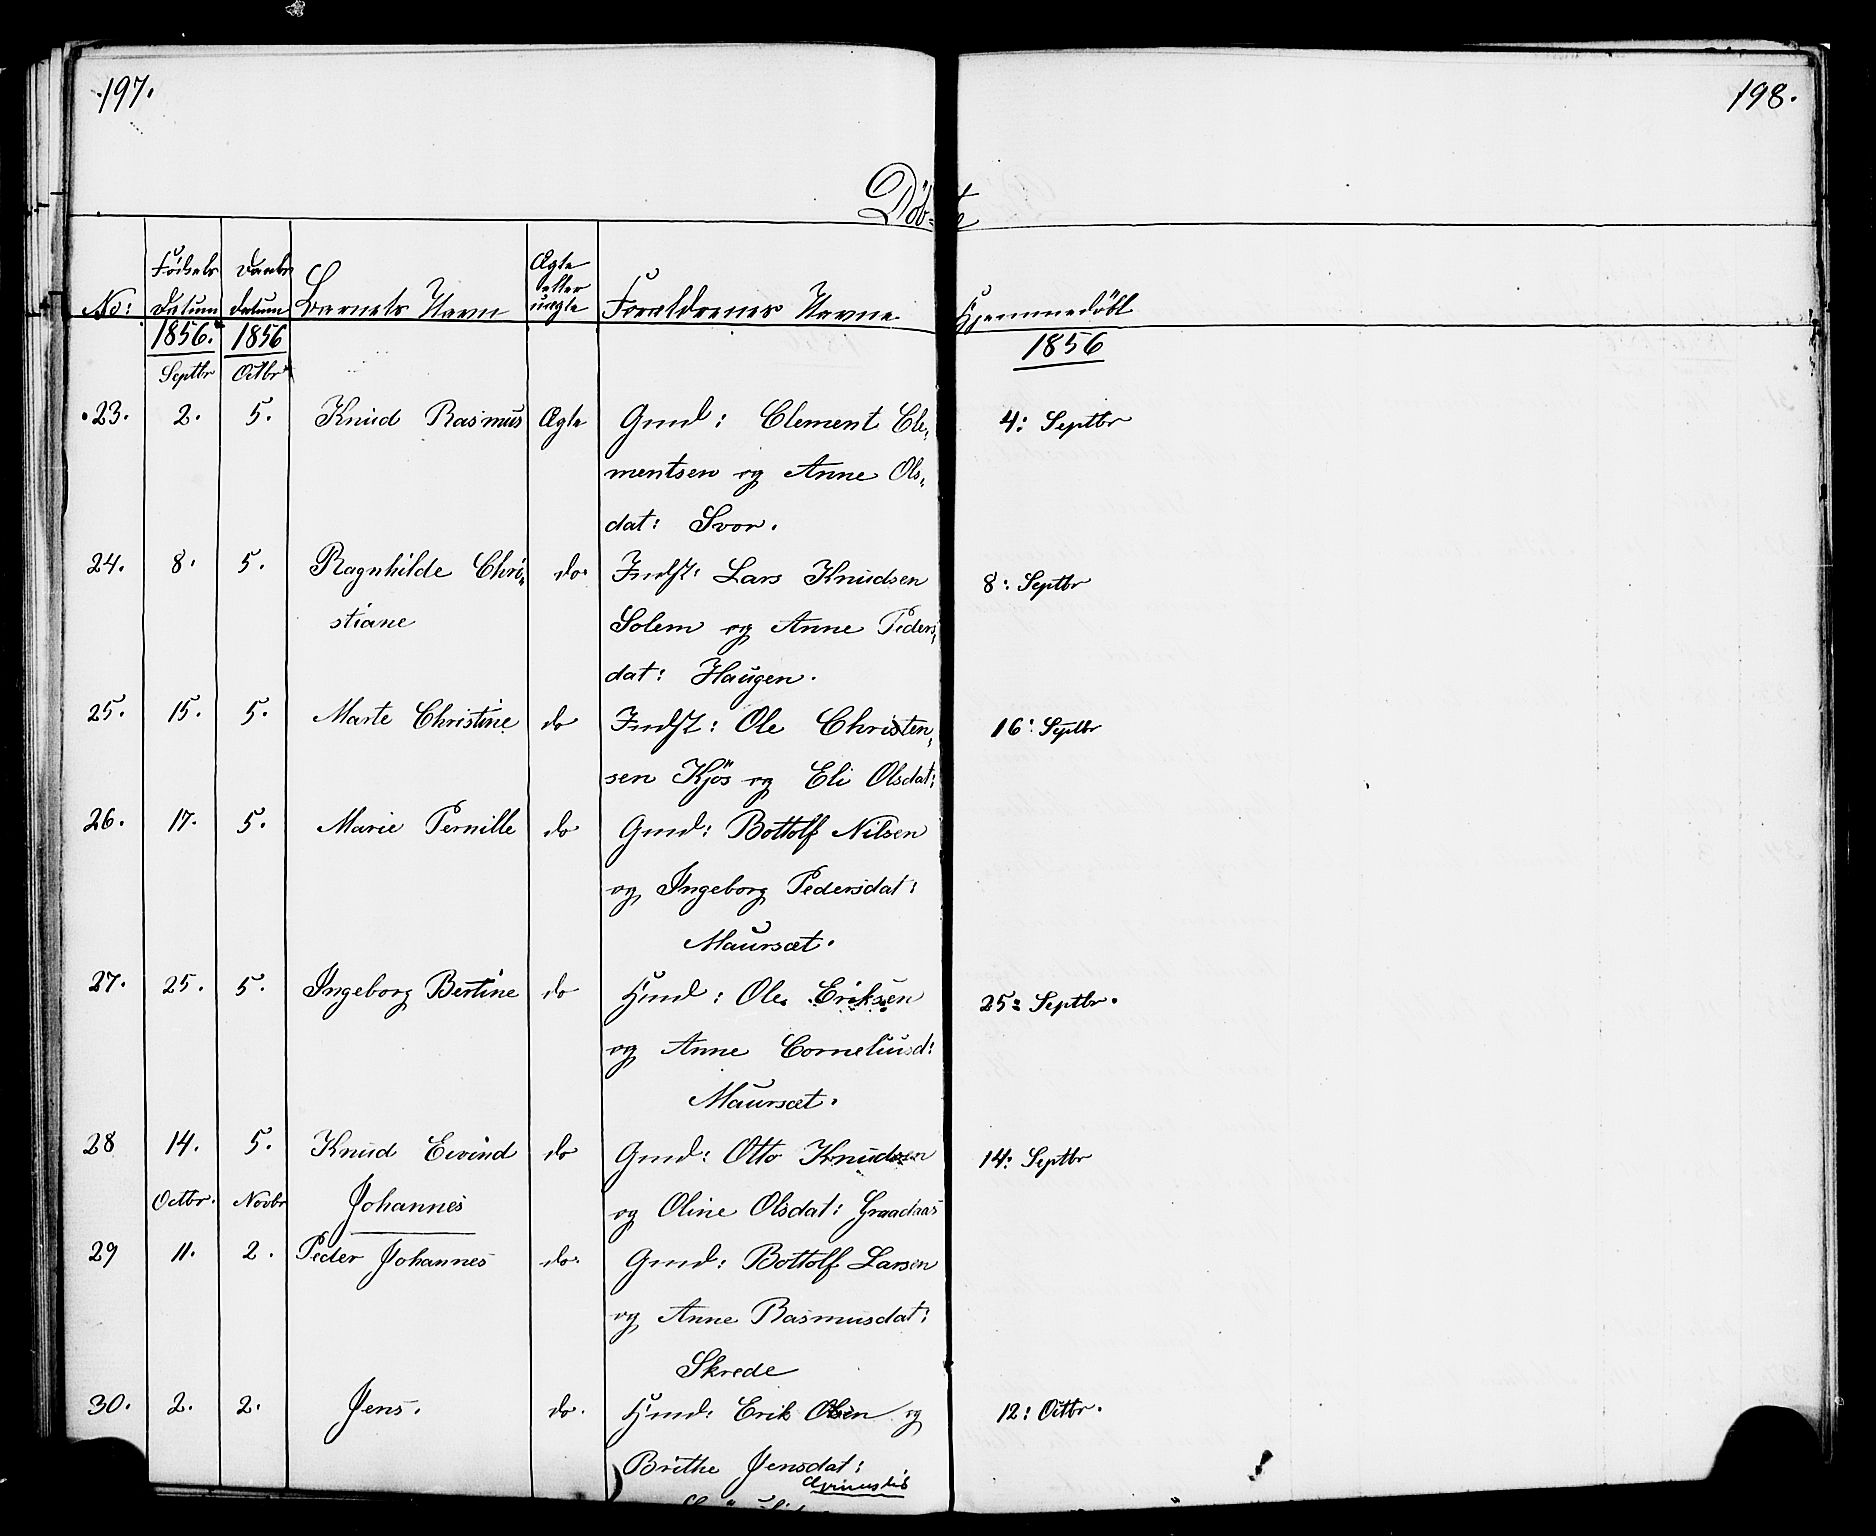 197.
198.
Döbte
No:
Födsels Datum
Daabs datum
Barnets Navn
Ægte eller uægte
Forældrenes Navne
Hjemmedöbt
1856. 1856 1856
Septbr Octbr
23. 2. 5. Knud Rasmus Ægte Gmd: Clement Cle, 4: Septbr
mentsen og Anne Ols,
dat: Svor.
24. 8. 5. Ragnhilde Chri, do. Indst: Lars Knudsen 8: Septbr
stiane Solem og Anne Peders,
dat: Haugen.
25. 15. 5. Marte Christine do Indst: Ole Christen, 16: Septbr
sen Kjös og Eli Olsdat:
26. 17. 5. Marie Pernille do Gmd: Bottolf Nilsen
og Ingeborg Pedersdat:
Maursæt.
27. 25. 5. Ingeborg Bertine do Hmd: Ole Eriksen 25: Septbr.
og Anne Corneliusd:
Maursæt.
28 14. 5. Knud Eivind do Gmd: Otto Knudsen 14: Septbr
Octbr. Novbr Johannes og Oline Olsdat: Graadaas
29 11. 2. Peder Johannes do. Gmd: Bottolf Larsen
og Anne Rasmusdat:
Skrede
30. 2. 2. Jens. do. Hmd: Erik Olsen og 12: Octbr.
Brithe Jensdat: